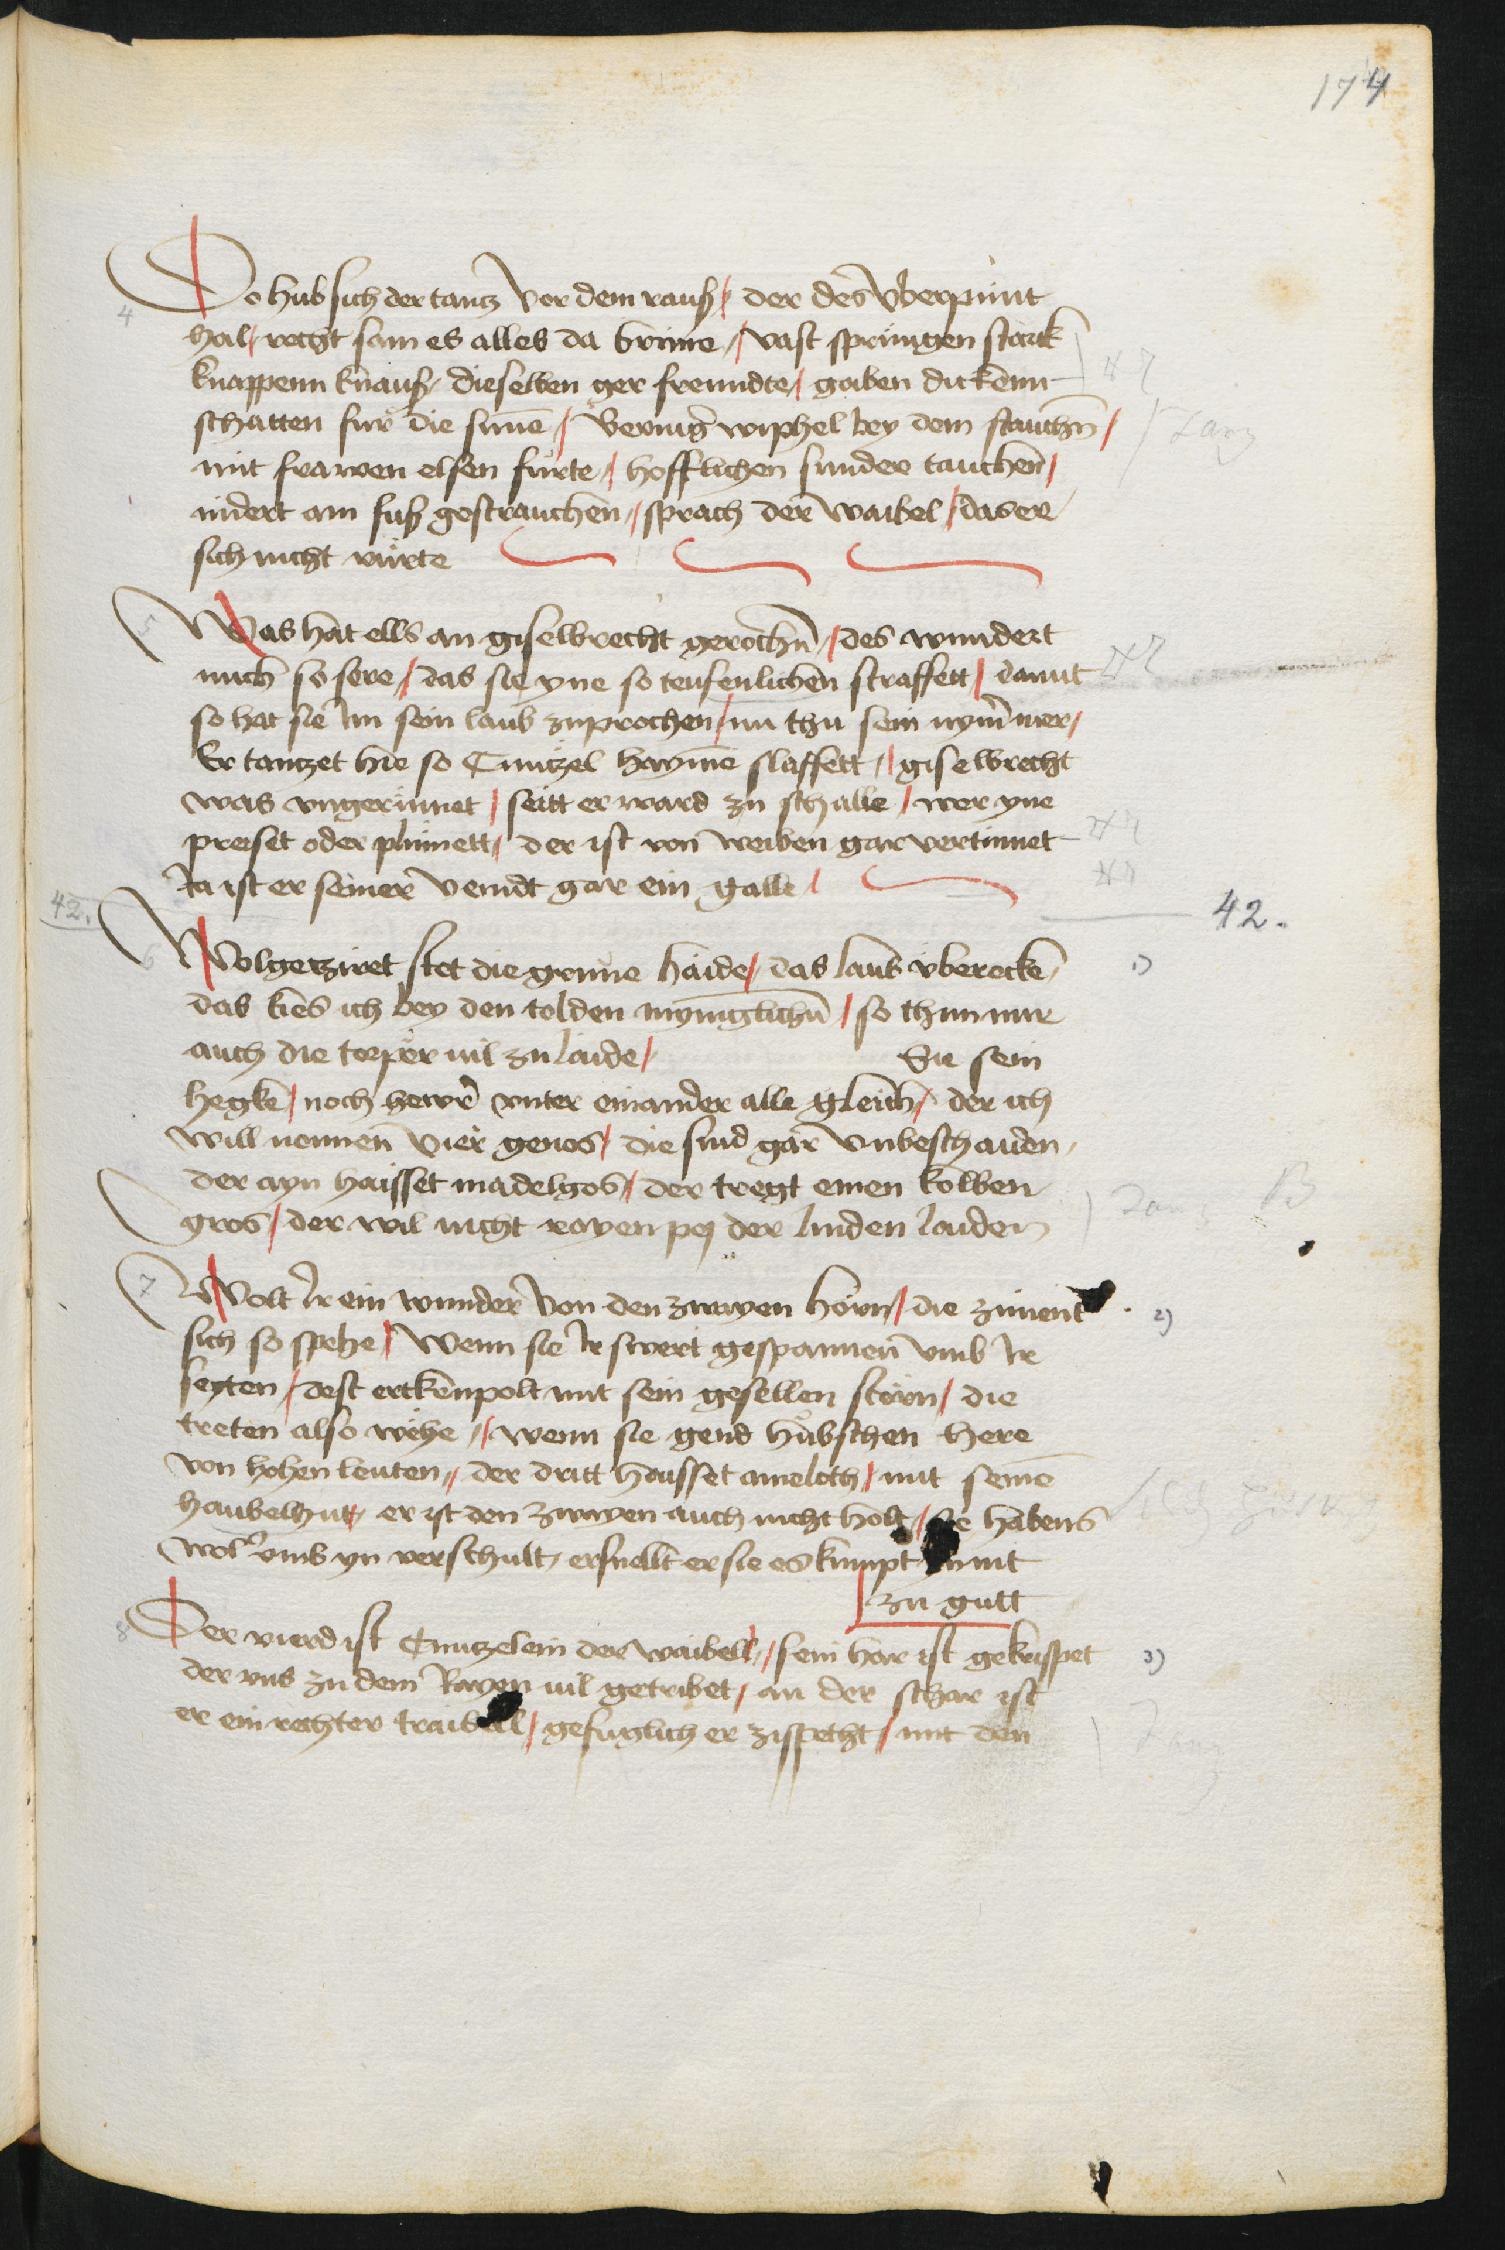 174
Do hub sich der tantz vor dem rauß / der des vberpünt
4
hal / recht sam es alles da brinne / vast springen starck
knappenn knauß / dieselben ger freundte / gaben dickenn
schatten fur die sunne / Beringer wiphel bey dem stauchn /
Tanz
mit frawen elsen furte / hofflichen sunder tauchen /
nidert am fuß gestrauchen / sprach der waibel / das er
sich nicht rürte
5
Was hat ells an giselbrecht gerochn / des wundert
mich so sere / das sie yne so teufenlichen straffett / damit
so hat sie Im sein laub zuprochen / nu thu sein nymmer /
Er tantzet hie so Cuntzel haymme slaffett / giselbrecht
was vngerinnet / seitt er ward zu schalle / wer yne
preiset oder plümett / der ist von weiben gar vertinnet
Ja ist er seiner veindt gar ein galle /
42.
42.
6
Wolgeziret stet die grune haide / das laub vberecke /
1)
das kies ich bey den tolden mynniglichn / so thun mir
auch die torper vil zu laide / Sie sein
hegke / noch hewr vnter einander alle gleich / der ich
will nennen vier genos / die sind gar vnbeschaiden /
der ayn haisset madelgos / der tregt einen kolben
gros / der wil nicht rayen pej der linden laiden
Tanz B
7
Wolt Ir ein wunder von den zwayen hörn / die zünent
2)
sich so spehe / Wenn sie Ir swert gespannen vmb Ir
seyten / dest erckenpolt mit sein gesellen störn / die
treten also wehe / wenn sie gend hubschen here
von hohen leuten / der dritt haisset ameloth / mit seine
haubelhut / er ist den zwayen auch nicht holt / sie habens
wol vmb yn verschult / ersnellt er sie es kumpt in nit
zu gutt
8
Der vierd ist Cuntzelein der waibell / sein har ist gekrispet
3)
der vns zu dem Rayen vil getribet / an der schar ist
er ein rechter traibel / gefuglich er zispetzt / mit den
Tanz